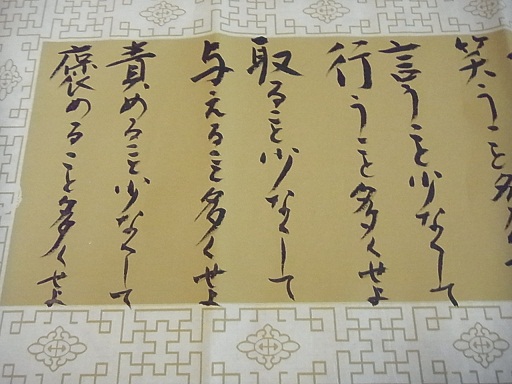 笑うこと多く
言うこと少なくして
行うこと多くせよ
取ること少なくして
与えること多くせよ
責めること少なくして
褒めること多くせよ